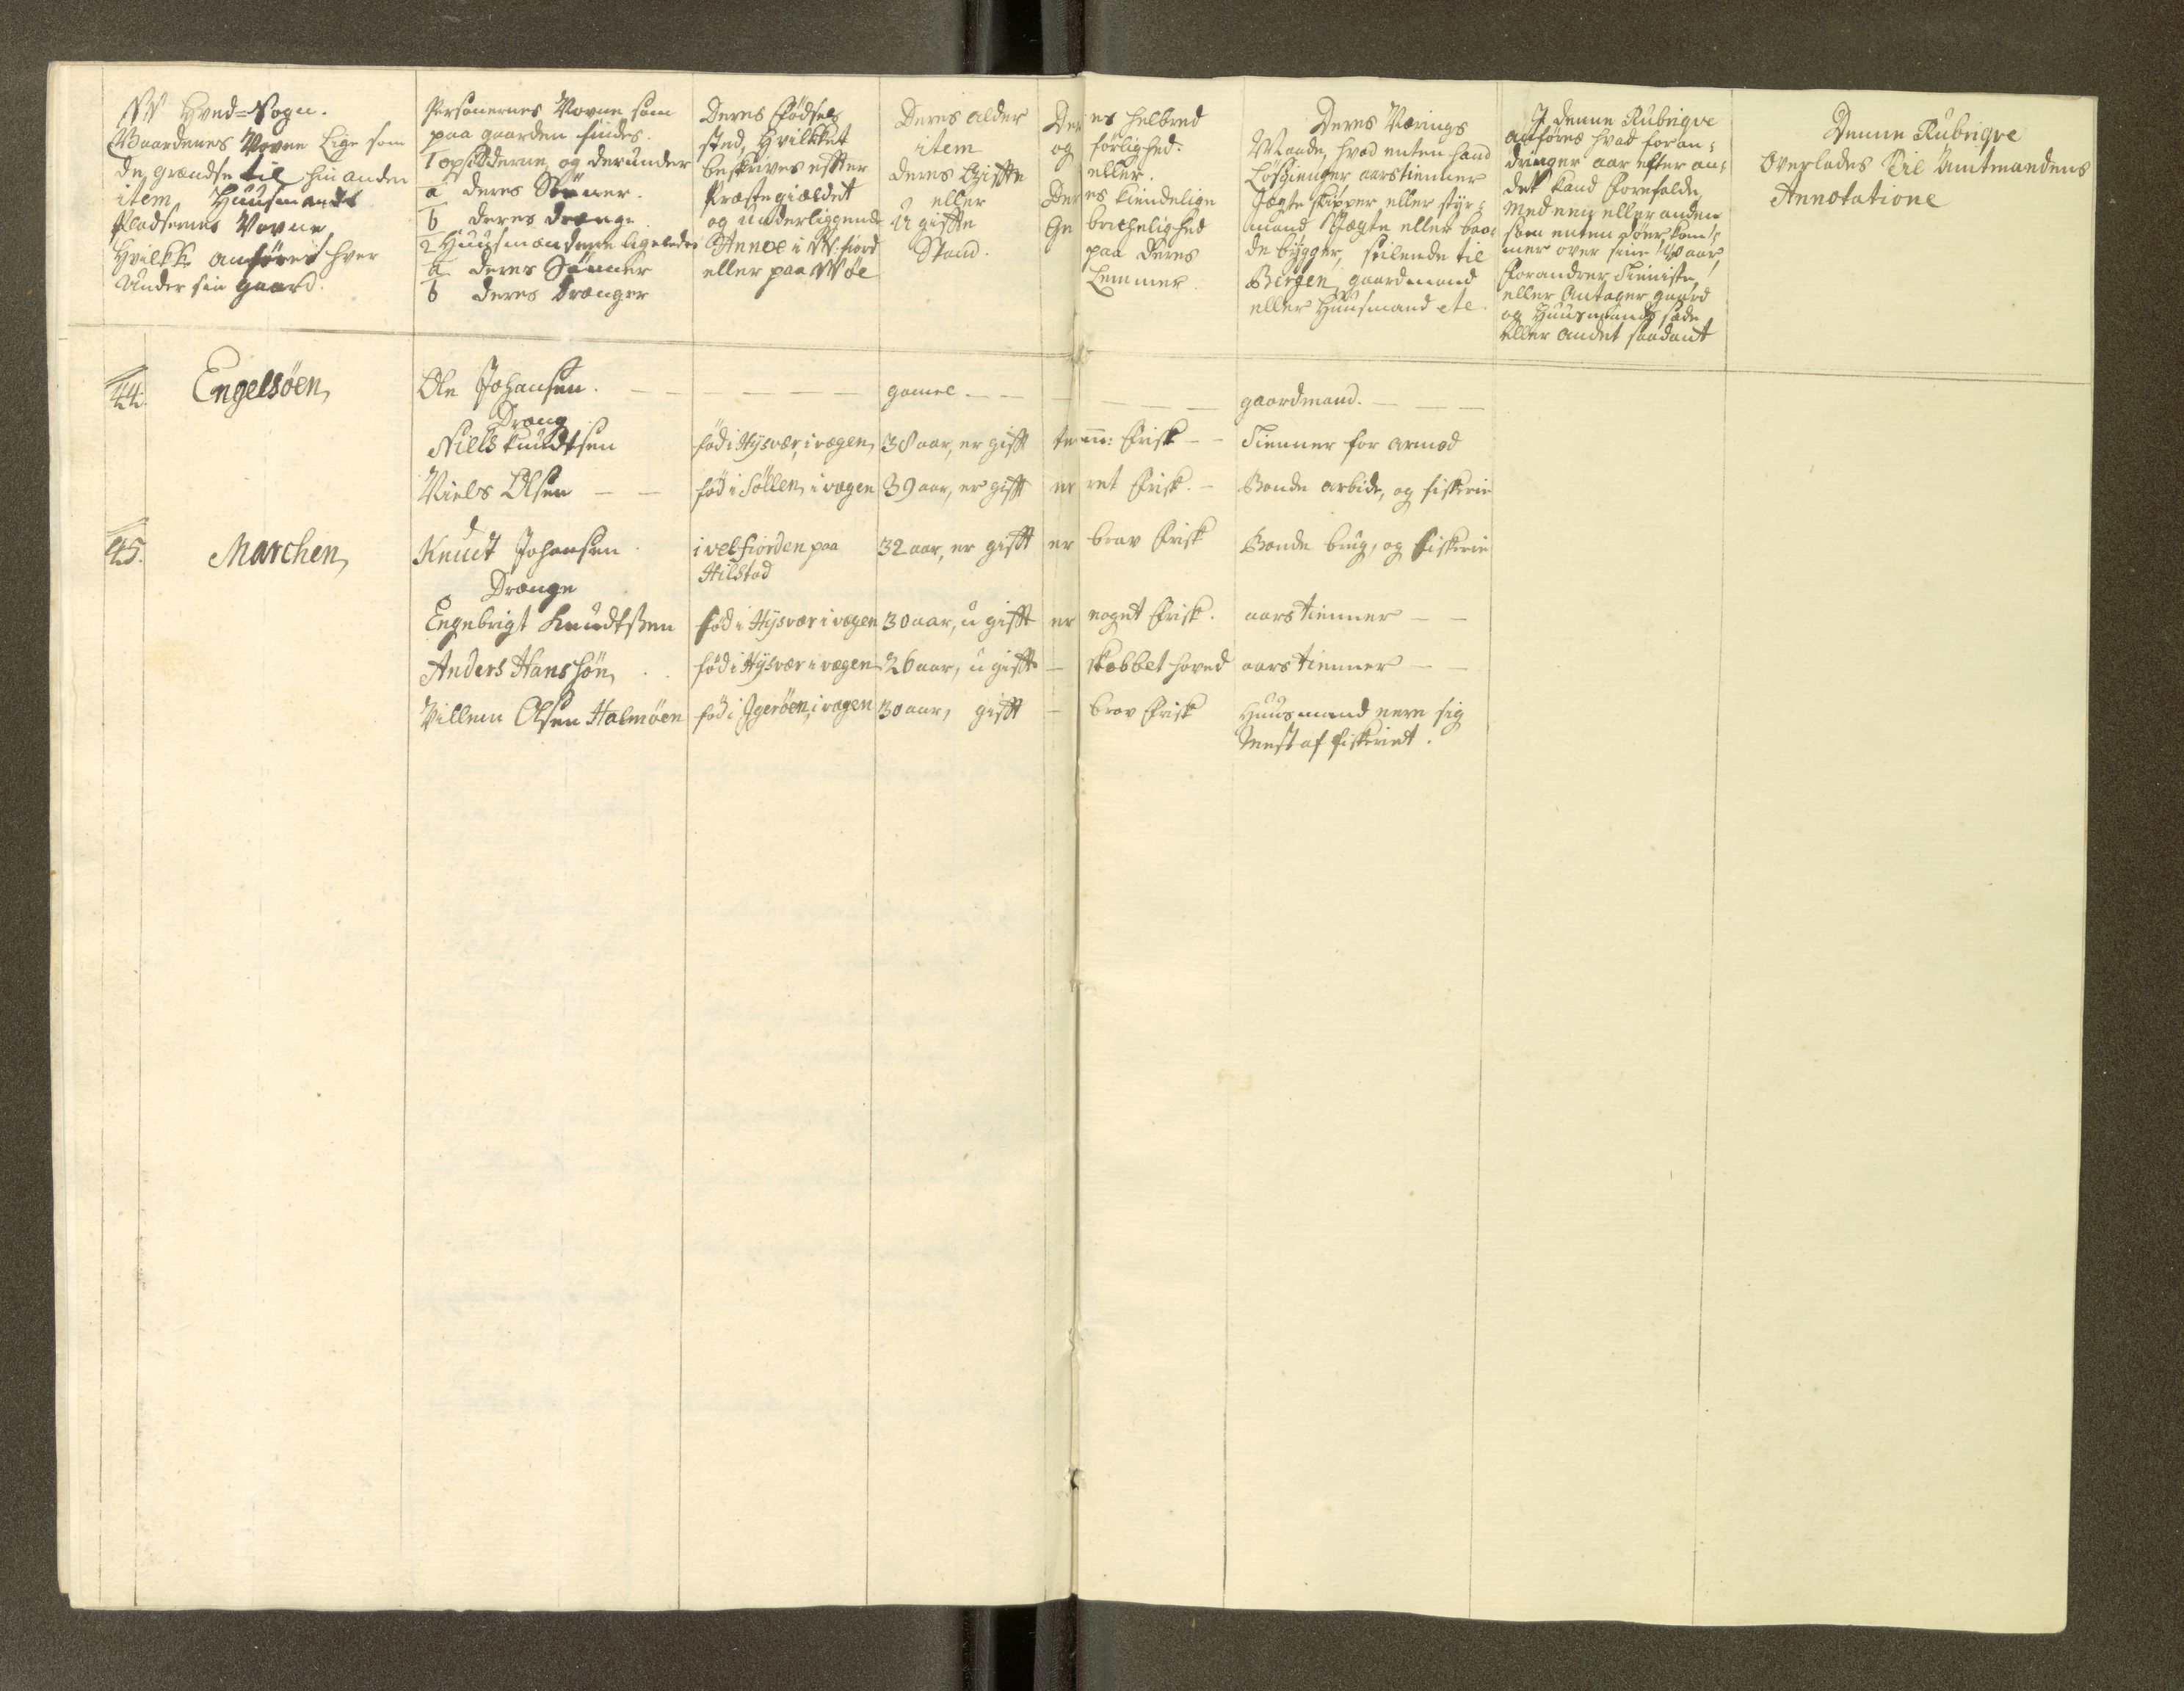 Hved=Sogn.
Gaardenes Navne Lige som
de grændse til hin anden
item Huusmands
Pladsernes Navne
Hvilke anføres hver
under sin gaard.
Personernes Navne som
paa gaarden findes.
1 opsidderne og derunder
a deres Sønner.
b deres drænge
2 Huusmændene ligeledes
a deres Sønner
b deres Drænger
Deres Fødsels
sted, Hvilkket
beskrives effter
Præstegiældet
og underliggende
Annex i fiord
eller paa
Deres alder
item
deres Giffte
eller
U giffte
Stand.
Deres helbred
og førlighed.
eller.
Deres kiendelige
Ge brechelighed
paa deres
Lemmer.
Deres Nærings
Maade, hvad enten hand
Løsgienger aarstienner
Jægte skipper eller styr=
mand Jægte eller baa=
de bygger, seilende til
Bergen, gaardmand
eller Huusmand etc
I denne Rubriqve
anføres hvad foran=
dringer aar efter an=
det kand forefalde
med een eller anden
som enten døer kom=
mer over sine 40 aar,
forandrer Tieniste,
eller antager gaard
og Huusmands sæde
eller andet saadant
Denne Rubriqve
Overlades Til Amtmandens
Annotatione
44. Engelsøen, Ole Johansen. — — — — gamel — — — — — gaardmand. — — —
Dræng
Niels Knudtsen fød i Hysvær, i vægen, 38 aar, er gifft temm: Frisk — — Tienner for armod
Niels Olsen — — fød i Søllen, i vægen 39 aar, er gifft er ret Frisk. — Bonde arbide, og fiskerie
45. Marchen, Knudt Johansen. i velfiorden paa 32 aar, er gifft er brav Frisk Bonde brug, og Fiskerie
Hilstad
Drænge
Engebrigt Knudtsen fød i Hysvær i vægen 30 aar, u gifft er noget Frisk. aars tienner — —
Anders Hanssøn, . . fød i Hysvær i vægen 26 aar, u gifft — skabbet hoved aars tienner — —
Villem Olsen Halmøen fød i Igerøen, i vægen 30 aar, gifft — brav Frisk Huusmand nere sig
mest af Fiskeriet.